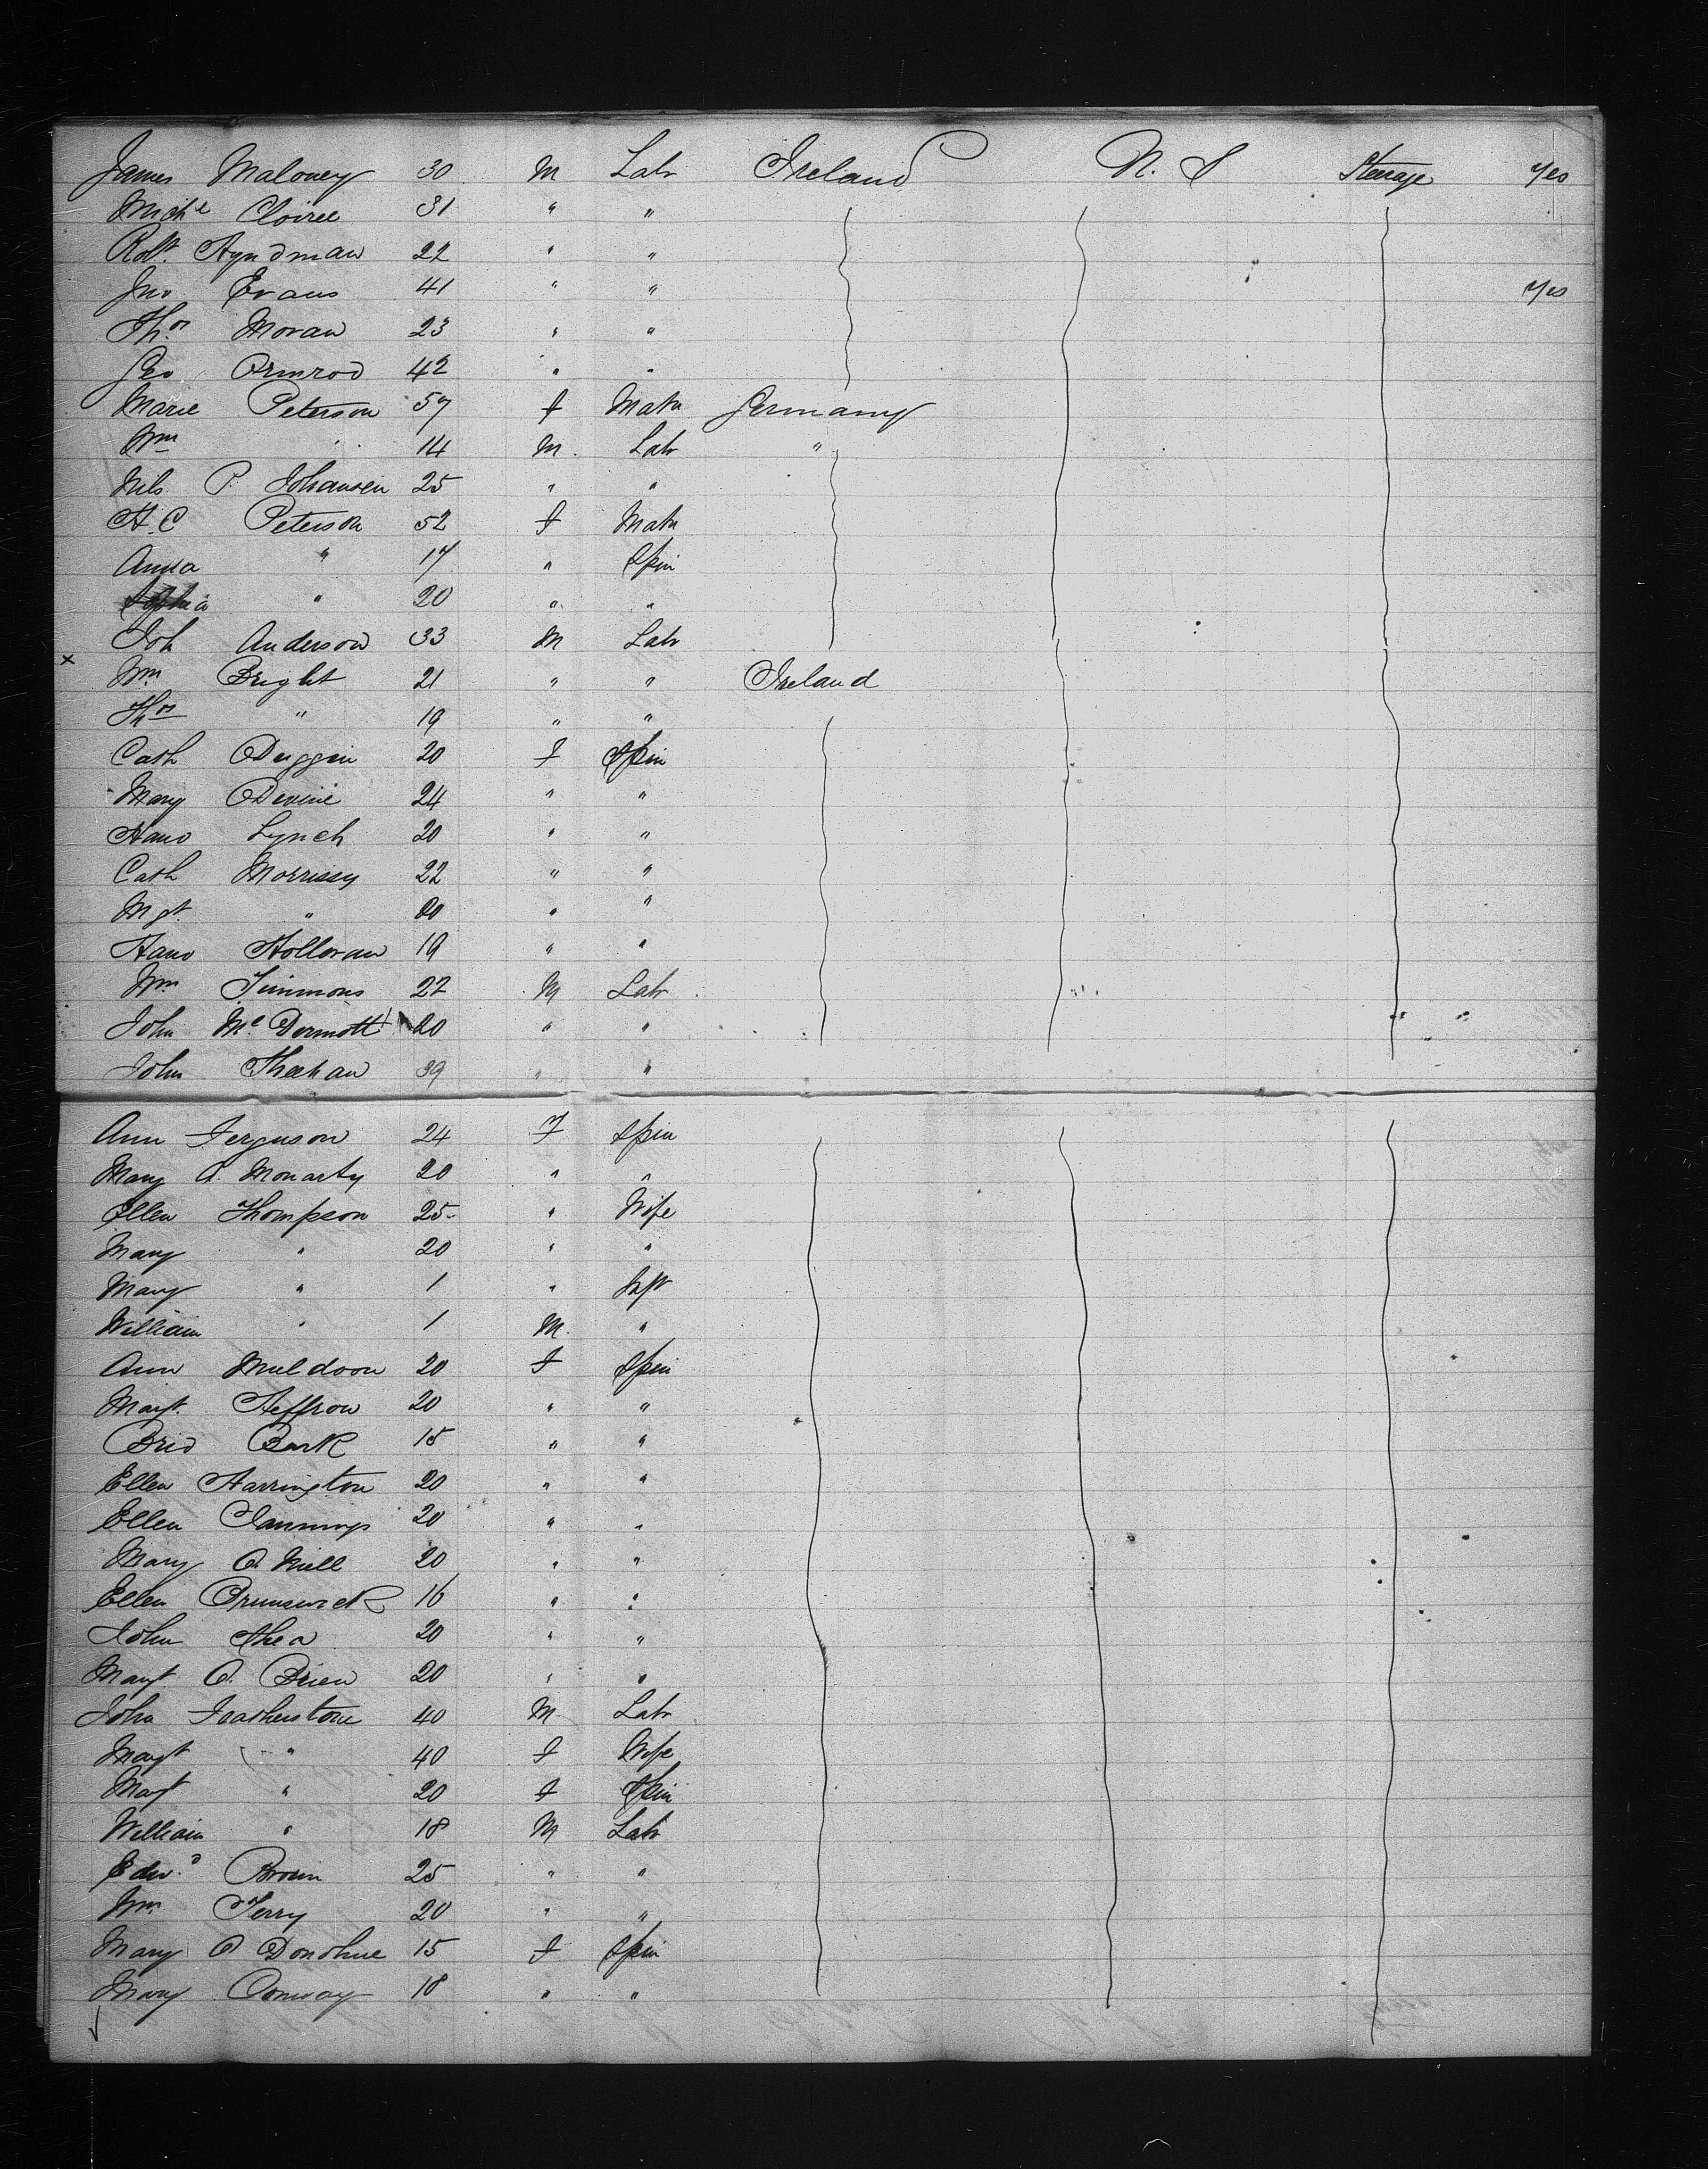 James Maloney 30 M Labr Ireland U. S Steerage Yes
Michl 31 " "
Robt. Hyndman 22 " "
Jno Evans 41 " " Yes
Thos. Moran 23 " "
Geo Ormrod 42 " "
Marie Peterson 57 F Matn Germany
Wm " 14 M. Labr "
Nils P. Johansen 25 " "
H. C Peterson 52 F Matn
Anna " 17 " Spin
Sophia " 20 " "
Joh Anderson 33 M Labr
x Wm Bright 21 " " Ireland
Thos " 19 " "
Cath Duggin 20 F Spin
Mary Devine 24 " "
Hano Lynch 20 " "
Cath Morrissy 22 " "
Mgt. " 20 " "
Hano Holloran 19 " "
Wm Timmons 22 M Labr
John Mc Dermott 20 " "
John Sheehan 39 " "
Ann Ferguson 24 F Spin
Mary A. Moriarty 20 " "
Ellen Thompson 25 " Wife
Mary " 20 " "
Mary " 1 " Inft
William " 1 M. "
Ann Muldoon 20 F Spin
Margt. Heffron 20 " "
Brid 15 " "
Ellen Harrington 20 " "
Ellen 20 " "
Mary O. Niell 20 " "
Ellen Brunswick 16 " "
John Shea 20 " "
Margt O. Brien 20 " "
John Featherstone 40 M Labr
Margt " 40 F Wife
Margt " 20 F Spin
William " 18 M Labr
Edwd. Brown 25 " "
Wm. Terry 20 " "
Mary O Donohue 15 F Spin
Mary Conway 18 " "